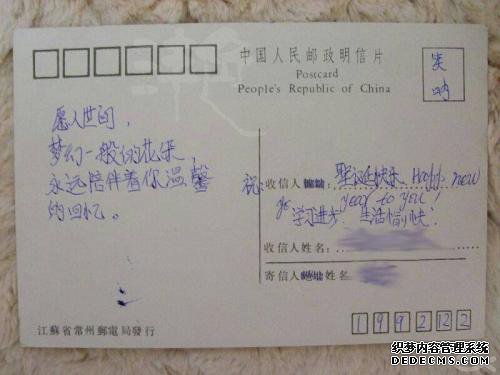 中国人民邮政明信片
Postcard
People's Republic of China
类
呐
愿人世间,
梦幻一般的花朵,
永远陪伴着你温馨
的回忆。
祝:
收信人 圣诞快乐, Happy new
year to you!
学习进步! 生活愉快!
收信人姓名:
寄信人 姓名
江蘇省常州郵電局發行
1992122
织梦内容管理系统
DEDECMS.COM